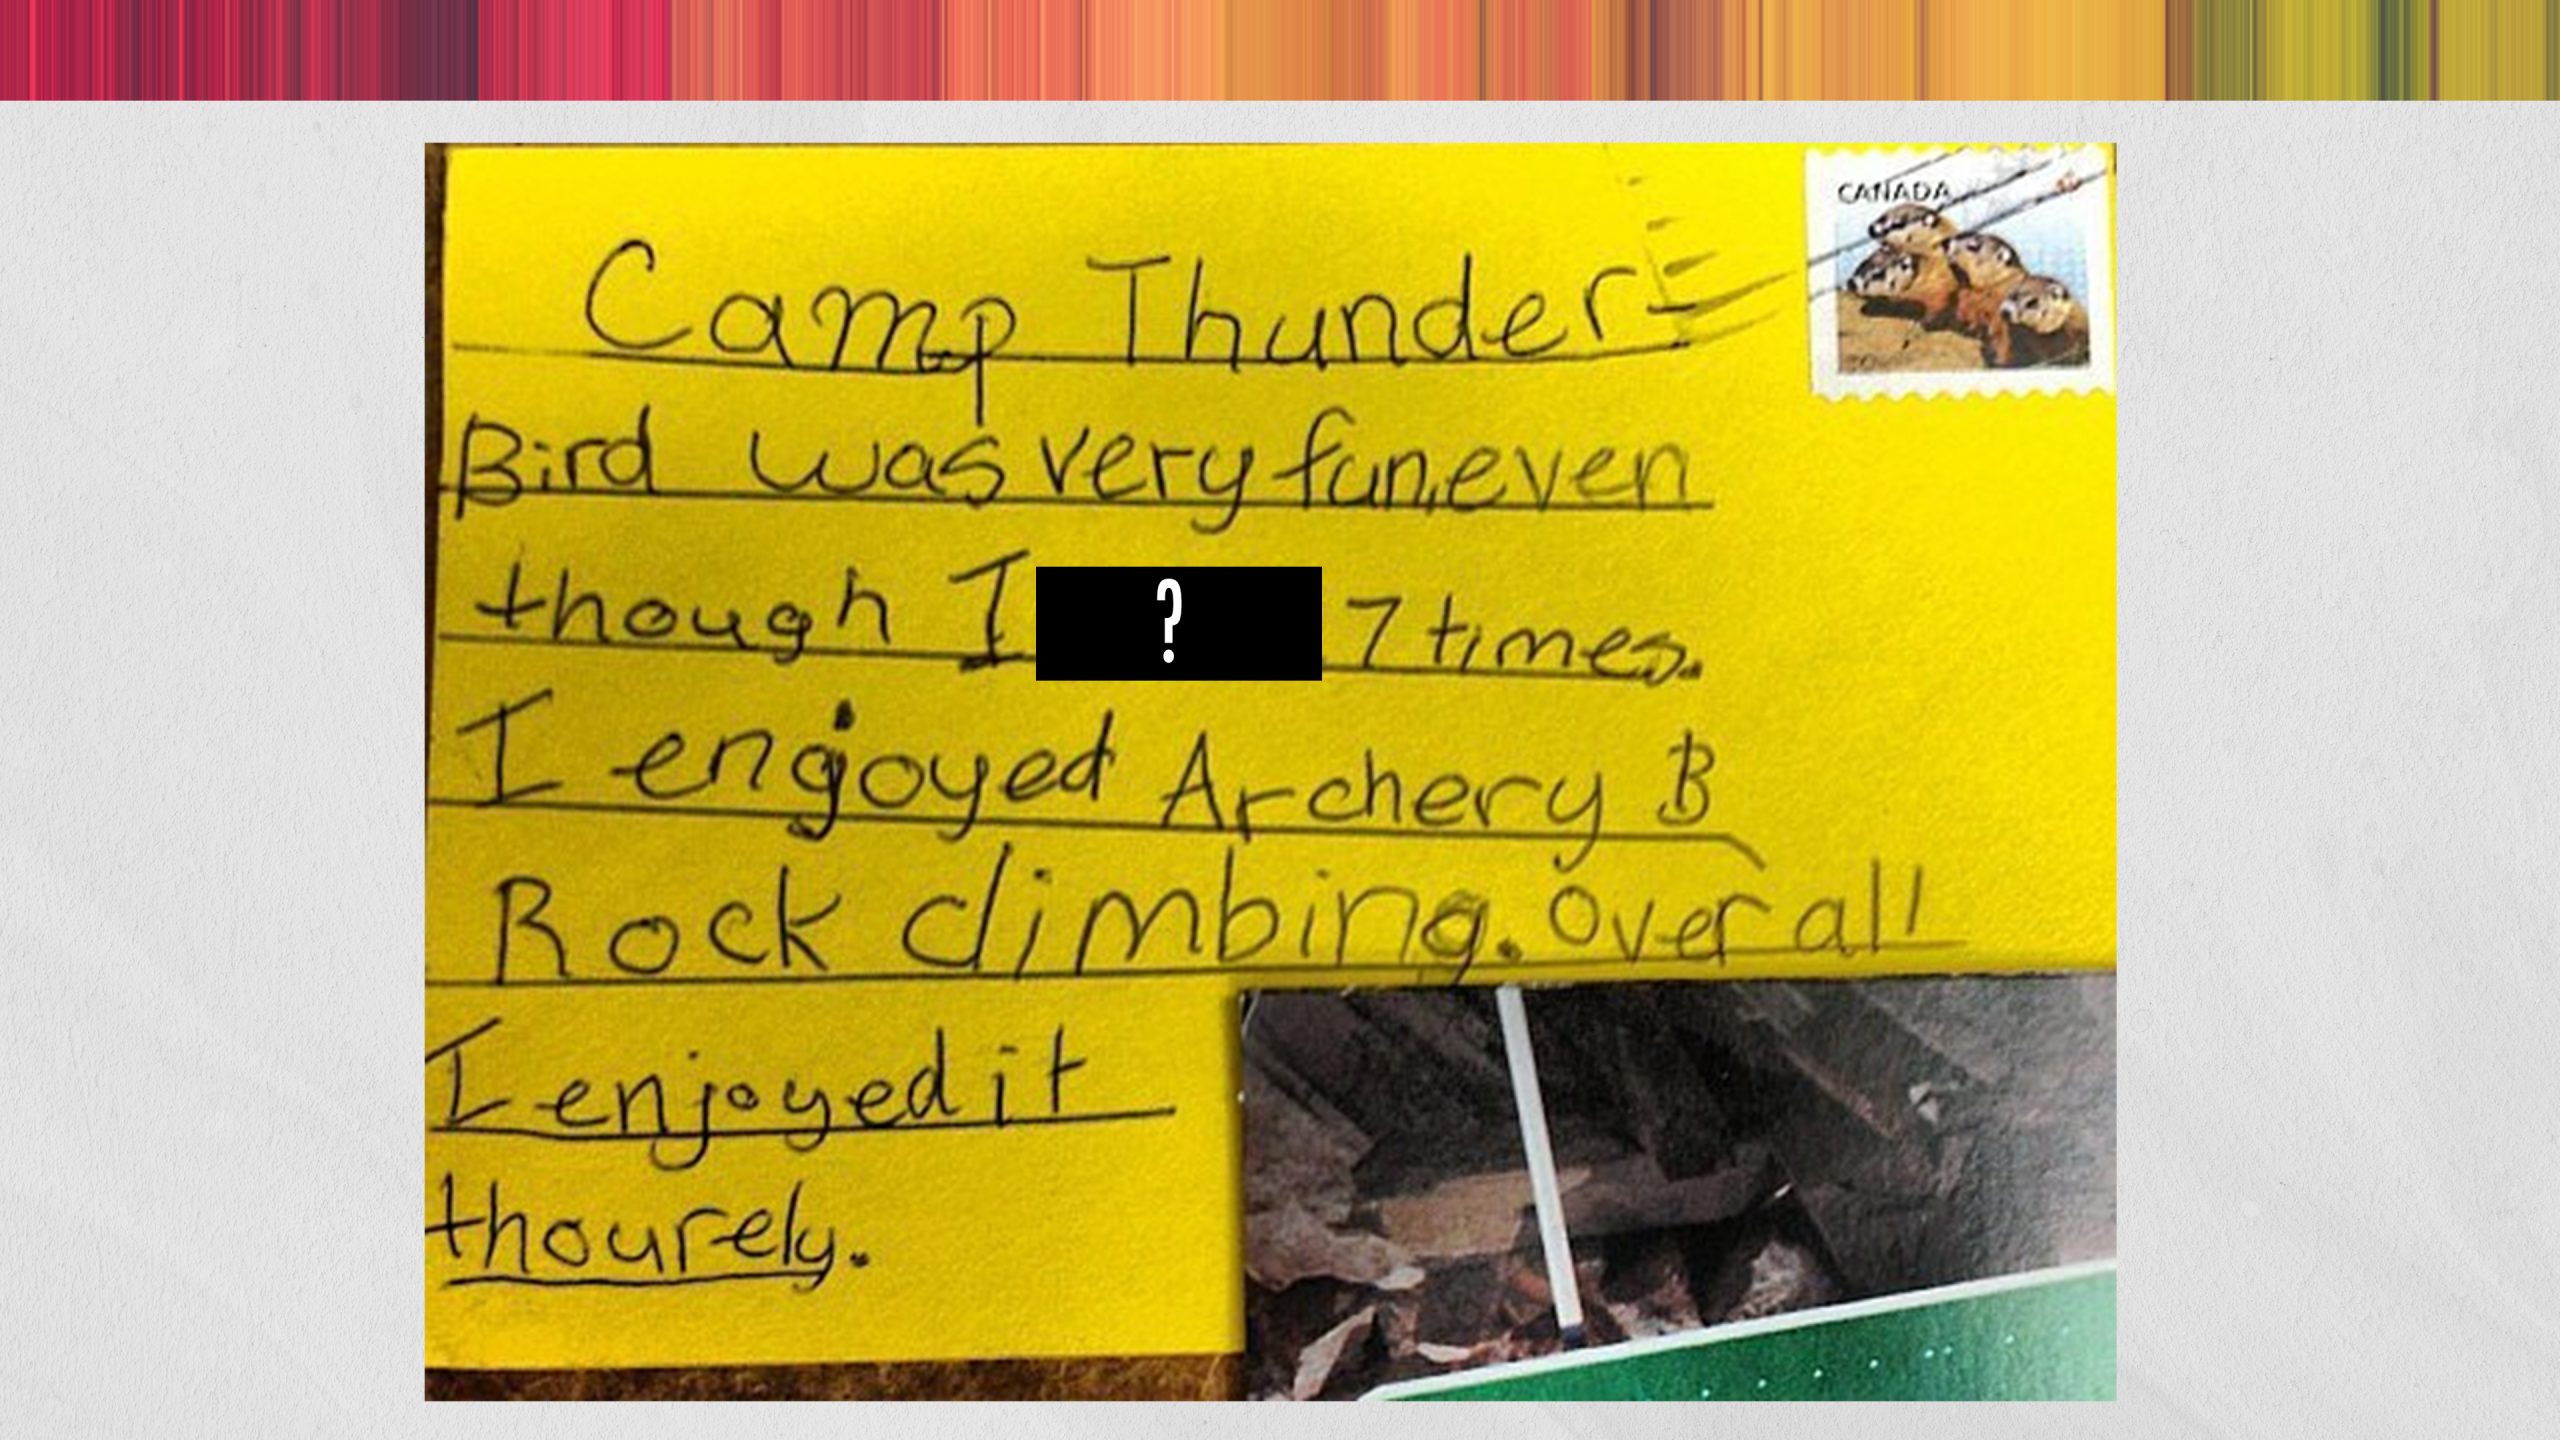 CANADA
Camp Thunder=
Bird was very fun, even
though I ? 7 times.
I engoyed Archery B
Rock climbing. Over all
I enjoyed it
thourely.